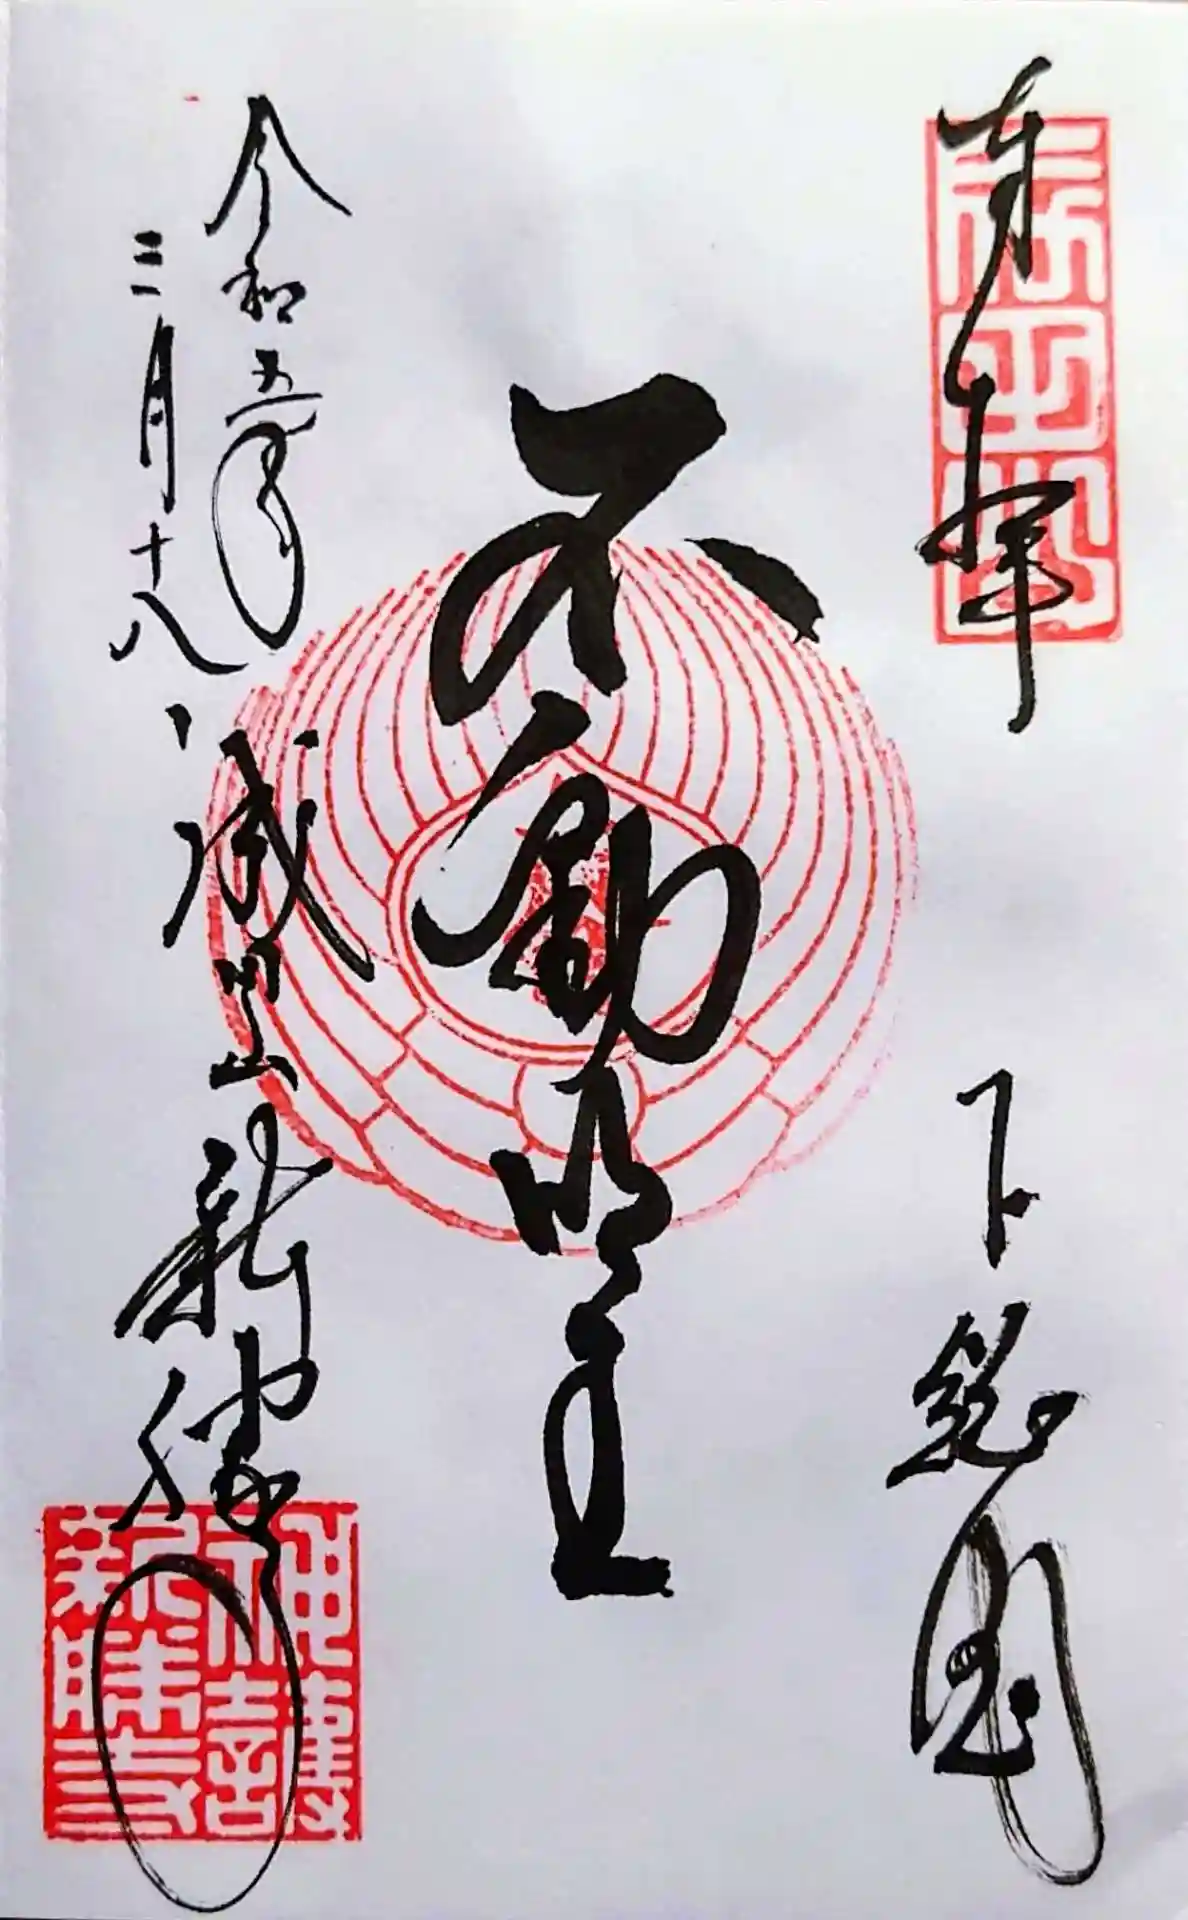 奉拝
成田山
下総国
不動明王
令和五年
三月十八
成田山新勝寺
神護
新勝寺